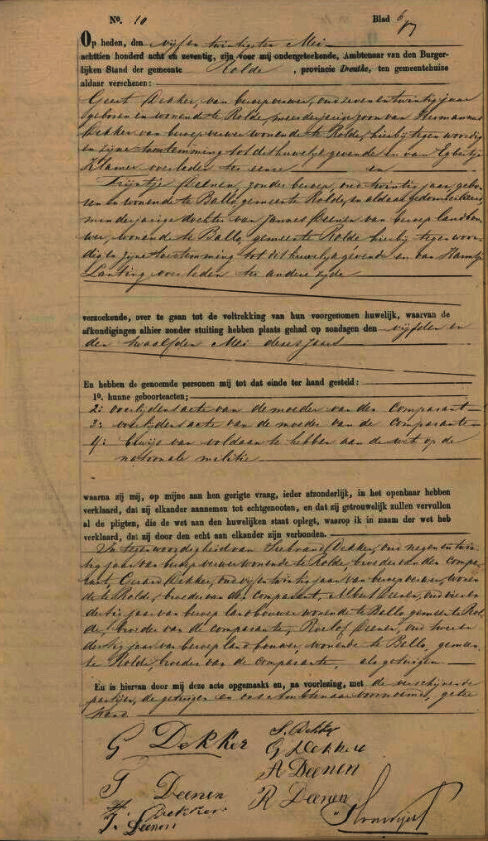 N°. 10 Blad 6
Op heden, den vijf en twintigsten Mei
achttien honderd acht en zeventig, zijn voor mij ondergeteekende, Ambtenaar van den Burger-
lijken Stand der gemeente Rolde, provincie Drenthe, ten gemeentehuize
aldaar verschenen:
Geert Dekker, van beroep verwer, oud zeven en twintig jaar
geboren en wonende te Rolde, meerderjarige zoon van Hermannus
Dekker van beroep verwer wonende te Rolde, hierbij tegenwoordig
en zijne toestemming tot dit huwelijk gevende en van Egbertje
Klamer overleden ter eenre en
Trijntje Deenen, zonder beroep, oud twintig jaar, gebo-
ren en wonende te Ballo, gemeente Rolde, en aldaar
minderjarige dochter van Jannes Deenen van beroep landbou
wer, wonende te Ballo, gemeente Rolde hierbij tegenwoor
dig en zijne toestemming tot dit huwelijk gevende en van
Lanting overleden ter andere zijde
verzoekende, over te gaan tot de voltrekking van hun voorgenomen huwelijk, waarvan de
afkondigingen alhier zonder stuiting hebben plaats gehad op zondagen den vijfden en
den twaalfden Mei dezes jaars
En hebben de genoemde personen mij tot dat einde ter hand gesteld:
1°. hunne geboorteacten;
2: overlijdensacte van de moeder van den comparant
3: overlijdensacte van de moeder van de comparante
4: bewijs van voldaan te hebben aan de wet op de
nationale militie
waarna zij mij, op mijne aan hen gerigte vraag, ieder afzonderlijk, in het openbaar hebben
verklaard, dat zij elkander aannemen tot echtgenooten, en dat zij getrouwelijk zullen vervullen
al de pligten, die de wet aan den huwelijken staat oplegt, waarop ik in naam der wet heb
verklaard, dat zij door den echt aan elkander zijn verbonden.
In tegenwoordigheid van Dekker, oud negen en twin
tig jaar van beroep verwer wonende te Rolde, broeder van den compa
rant, Dekker, oud vijf en twintig jaar van beroep verwer, wonen
de te Rolde, broeder van den comparant, Albert Deenen, oud vier en
dertig jaar van beroep landbouwer wonende te Ballo gemeente Rol
de, broeder van de comparante, Roelof Deenen, oud twee en
dertig jaar van beroep landbouwer, wonende te Ballo, gemeen
te Rolde, broeder van de comparante, als getuigen
En is hiervan door mij deze acte opgemaakt en, na voorlezing, met de verschijnende
partijen, de getuigen en ons ambtenaar voornoemd, getee
kend
G Dekker
S. Dekker
G Dekker
T Deenen
A Deenen
H. Dekker
R Deenen
J. Deenen